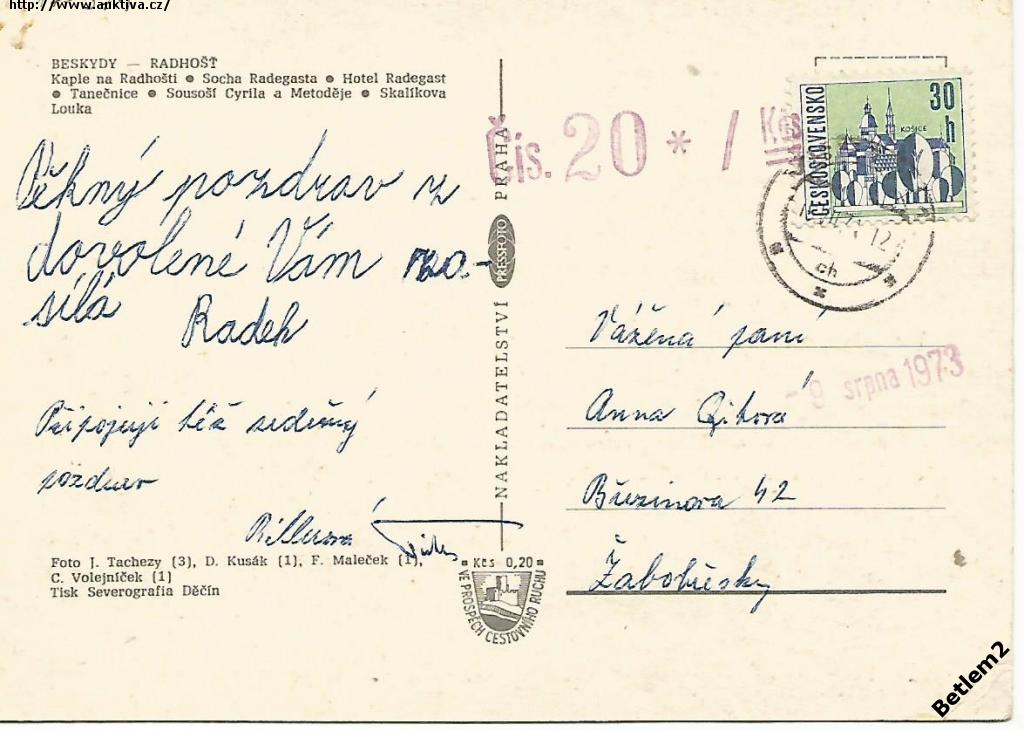 http://www.auktiva.cz/
BESKYDY — RADHOŠŤ
Kaple na Radhošti ● Socha Radegasta ● Hotel Radegast
● Tanečnice ● Sousoší Cyrila a Metoděje ● Skalíkova
Louka
Pěkný pozdrav z
dovolené Vám za-
sílá Radek
Připojuji též srdečný
pozdrav
Foto J. Tachezy (3), D. Kusák (1), F. Maleček (1),
C. Volejníček (1)
Tisk Severografia Děčín
NAKLADATELSTVÍ PRESSFOTO PRAHA
Kčs 0,20
VE PROSPĚCH CESTOVNÍHO RUCHU
Čís. 20 * / Kčs
ČESKOSLOVENSKO
30 h
KOŠICE
ch
- 9 srpna 1973
Vážená paní
Anna
Březinova 42
Žabovřesky
Betlem2